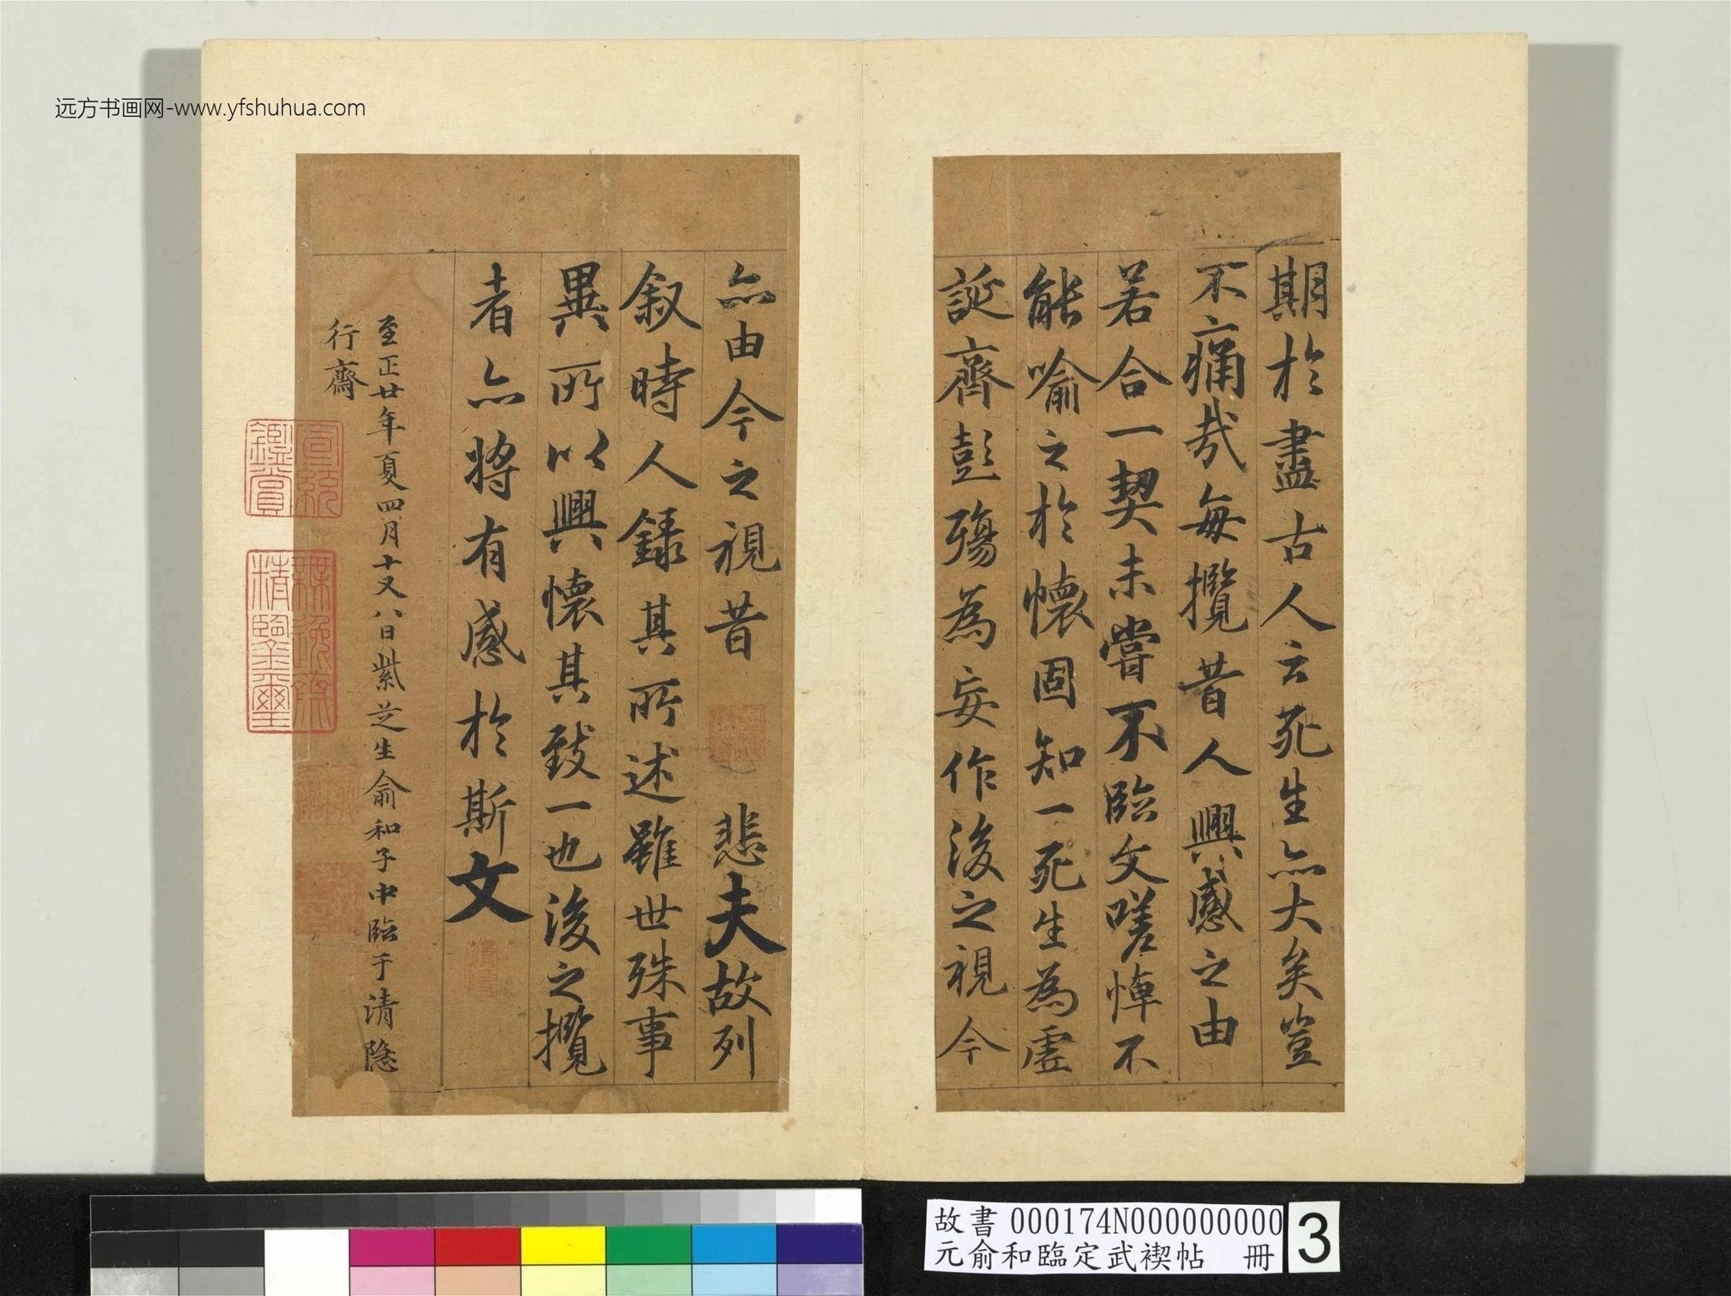 远方书画网-www.yfshuhua.com
期於盡古人云死生亦大矣豈
不痛哉每攬昔人興感之由
若合一契未嘗不臨文嗟悼不
能喻之於懷固知一死生為虛
誕齊彭殤為妄作後之視今
亦由今之視昔 悲夫故列
叙時人錄其所述雖世殊事
異所以興懷其致一也後之攬
者亦將有感於斯文
至正廿年夏四月十又八日紫芝生俞和子中臨于清隐
行齋
宣統
鑑賞
無逸齋
精鑒璽
故書000174N000000000
元俞和臨定武禊帖 冊
3